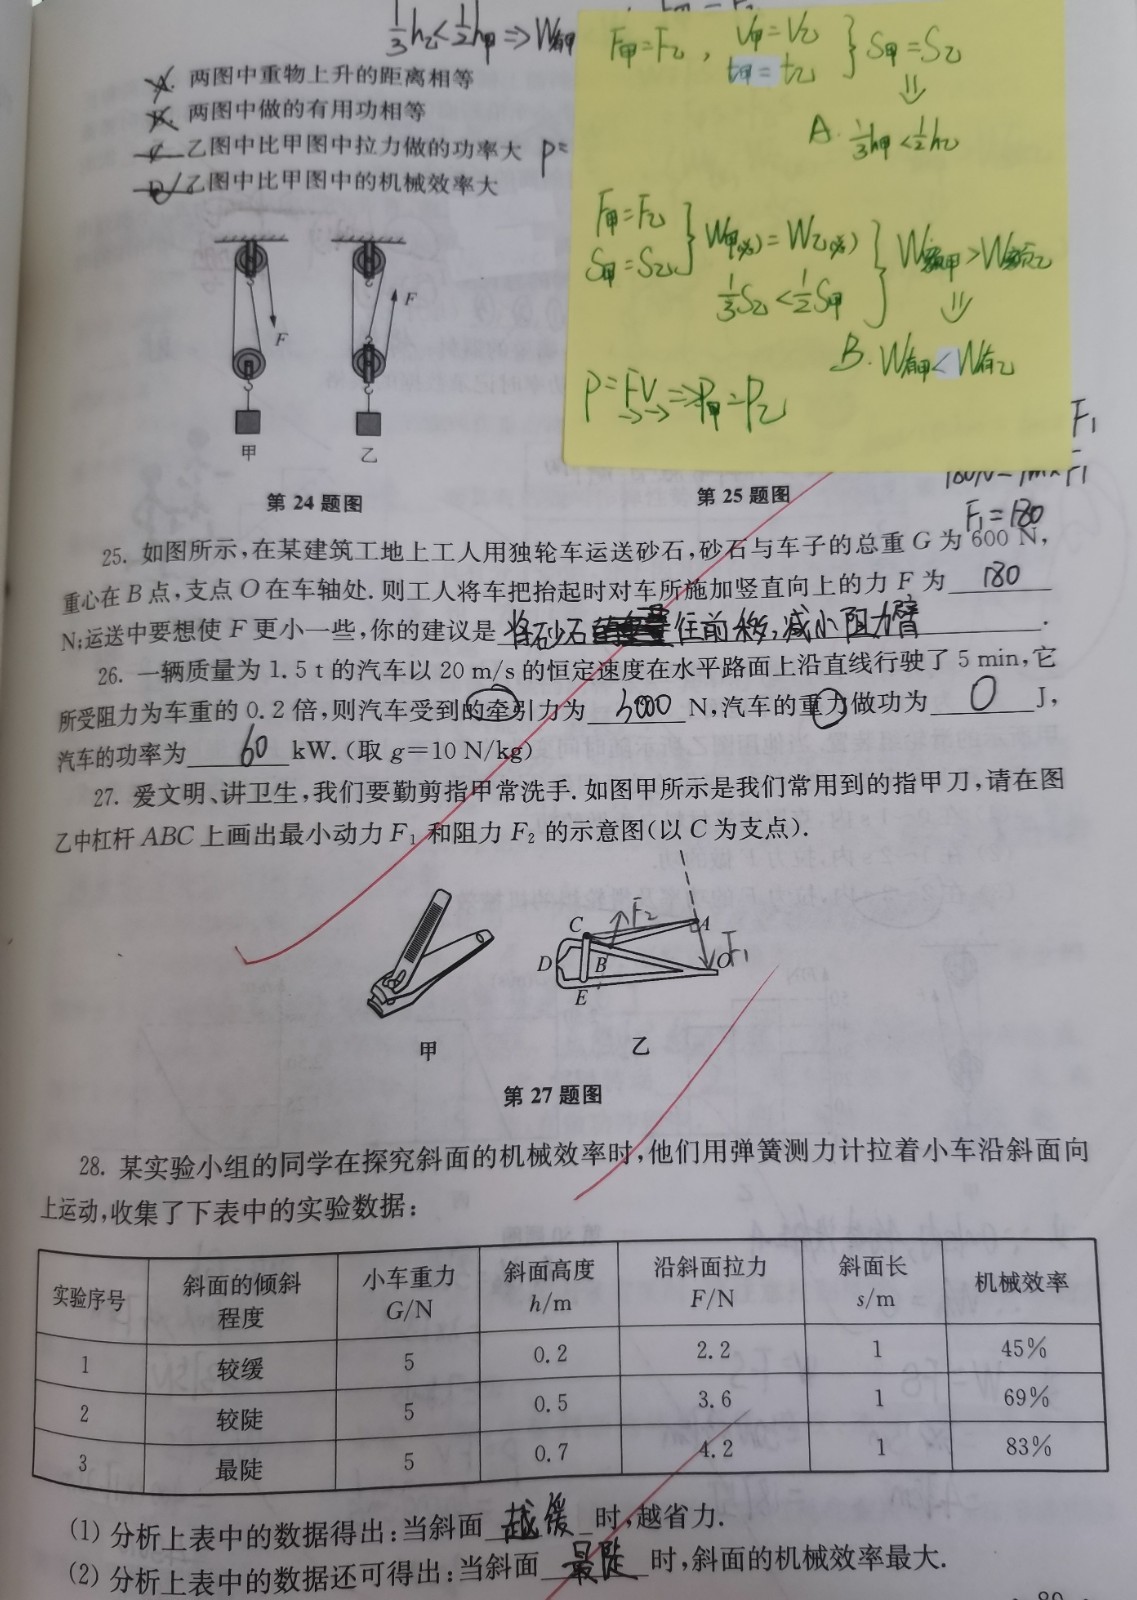 1/3 h乙 < 1/2 h甲 ⇒ W额甲
A. 两图中重物上升的距离相等
B. 两图中做的有用功相等
C. 乙图中比甲图中拉力做的功率大 P=
D. 乙图中比甲图中的机械效率大
F甲=F乙, V甲=V乙 t甲=t乙 } S甲=S乙
⇓
A. 1/3 h甲 < 1/2 h乙
F甲=F乙 S甲=S乙 } W甲(总)=W乙(总)
1/3 S乙 < 1/2 S甲 } W额甲>W额乙
⇓
B. W有甲<W有乙
P=FV ⇒ P甲=P乙
F
F
甲 乙
第 24 题图 第 25 题图
F₁
180N=1m×F₁
F₁=180
25. 如图所示,在某建筑工地上工人用独轮车运送砂石,砂石与车子的总重 G 为 600 N,
重心在 B 点,支点 O 在车轴处. 则工人将车把抬起时对车所施加竖直向上的力 F 为 180
N;运送中要想使 F 更小一些,你的建议是 将砂石往前移,减小阻力臂.
26. 一辆质量为 1.5 t 的汽车以 20 m/s 的恒定速度在水平路面上沿直线行驶了 5 min,它
所受阻力为车重的 0.2 倍,则汽车受到的牵引力为 3000 N,汽车的重力做功为 0 J,
汽车的功率为 60 kW. (取 g=10 N/kg)
27. 爱文明、讲卫生,我们要勤剪指甲常洗手. 如图甲所示是我们常用到的指甲刀,请在图
乙中杠杆 ABC 上画出最小动力 F₁ 和阻力 F₂ 的示意图(以 C 为支点).
C F₂ A
D B O F₁
E
甲 乙
第 27 题图
28. 某实验小组的同学在探究斜面的机械效率时,他们用弹簧测力计拉着小车沿斜面向
上运动,收集了下表中的实验数据:
实验序号 斜面的倾斜程度 小车重力 G/N 斜面高度 h/m 沿斜面拉力 F/N 斜面长 s/m 机械效率
1 较缓 5 0.2 2.2 1 45%
2 较陡 5 0.5 3.6 1 69%
3 最陡 5 0.7 4.2 1 83%
(1) 分析上表中的数据得出:当斜面 越缓 时,越省力.
(2) 分析上表中的数据还可得出:当斜面 最陡 时,斜面的机械效率最大.